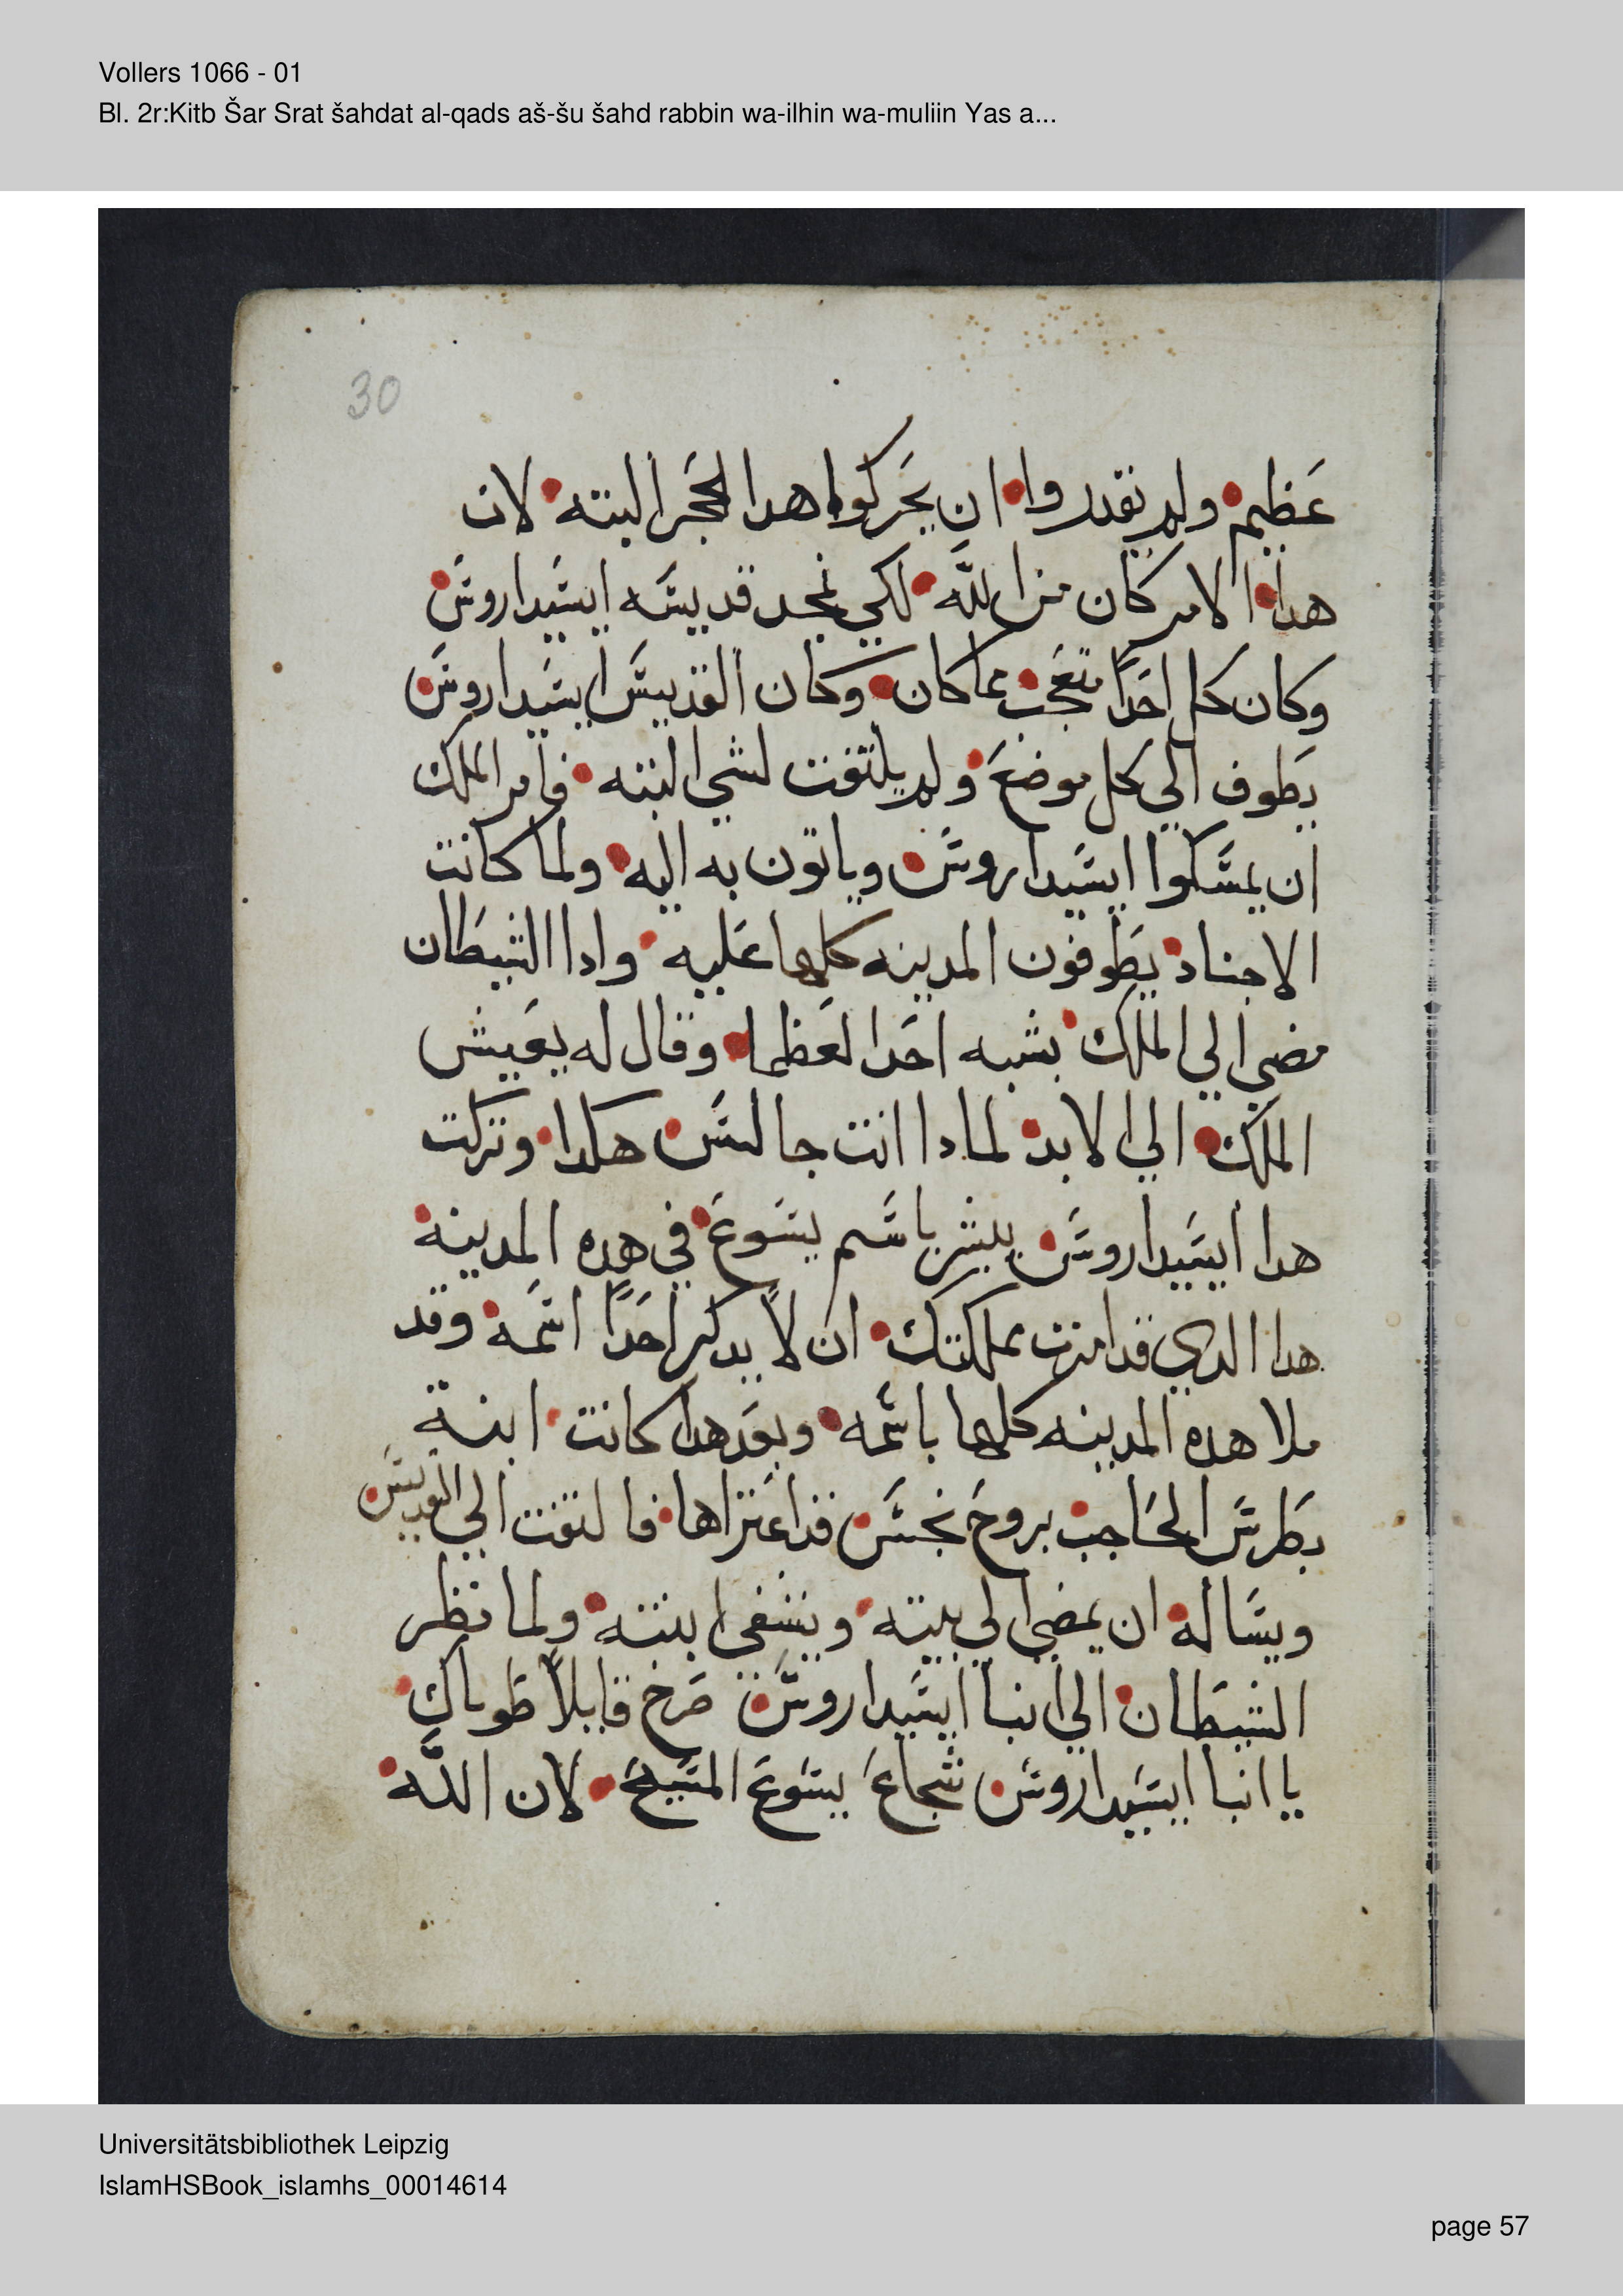 Vollers 1066 - 01
Bl. 2r:Kitb Šar Srat šahdat al-qads aš-šu šahd rabbin wa-ilhin wa-muliin Yas a...
30
عظيم ولم يقدروا ان يحركوا هدا الحجر البته لان
هدا الامر كان من الله لكي يمجد قديسه ايسيداروس
وكان كل احدًا متعجب مما كان وكان القديس ايسيداروس
يطوف الي كل موضع ولم يلتفت لشي البته فامر الملك
ان يمسكوا ايسيداروس وياتون به اليه ولما كانت
الاجناد يطوفون المدينه كلها عليه وادا الشيطان
مضي الي الملك بشبه احد العظما وقال له يعيش
الملك الي الابد لمادا انت جالس هكدا وتركت
هدا ايسيداروس يبشر باسم يسوع في هده المدينه
هدا الدي قد امرت مملكتك ان لا يدكر احدًا اسمه وقد
ملا هده المدينه كلها باسمه وبعد هدا كانت ابنة
بطرس الحاجب بروح نجس قد اعتراها فالتفت الي القديس
ويساله ان يمضي الي بيته ويشفي ابنته ولما نظر
الشيطان الي انبا ايسيداروس صرخ قايلاً طوباك
يا انبا ايسيداروس شجاع يسوع المسيح لان الله
Universitätsbibliothek Leipzig
IslamHSBook_islamhs_00014614
page 57